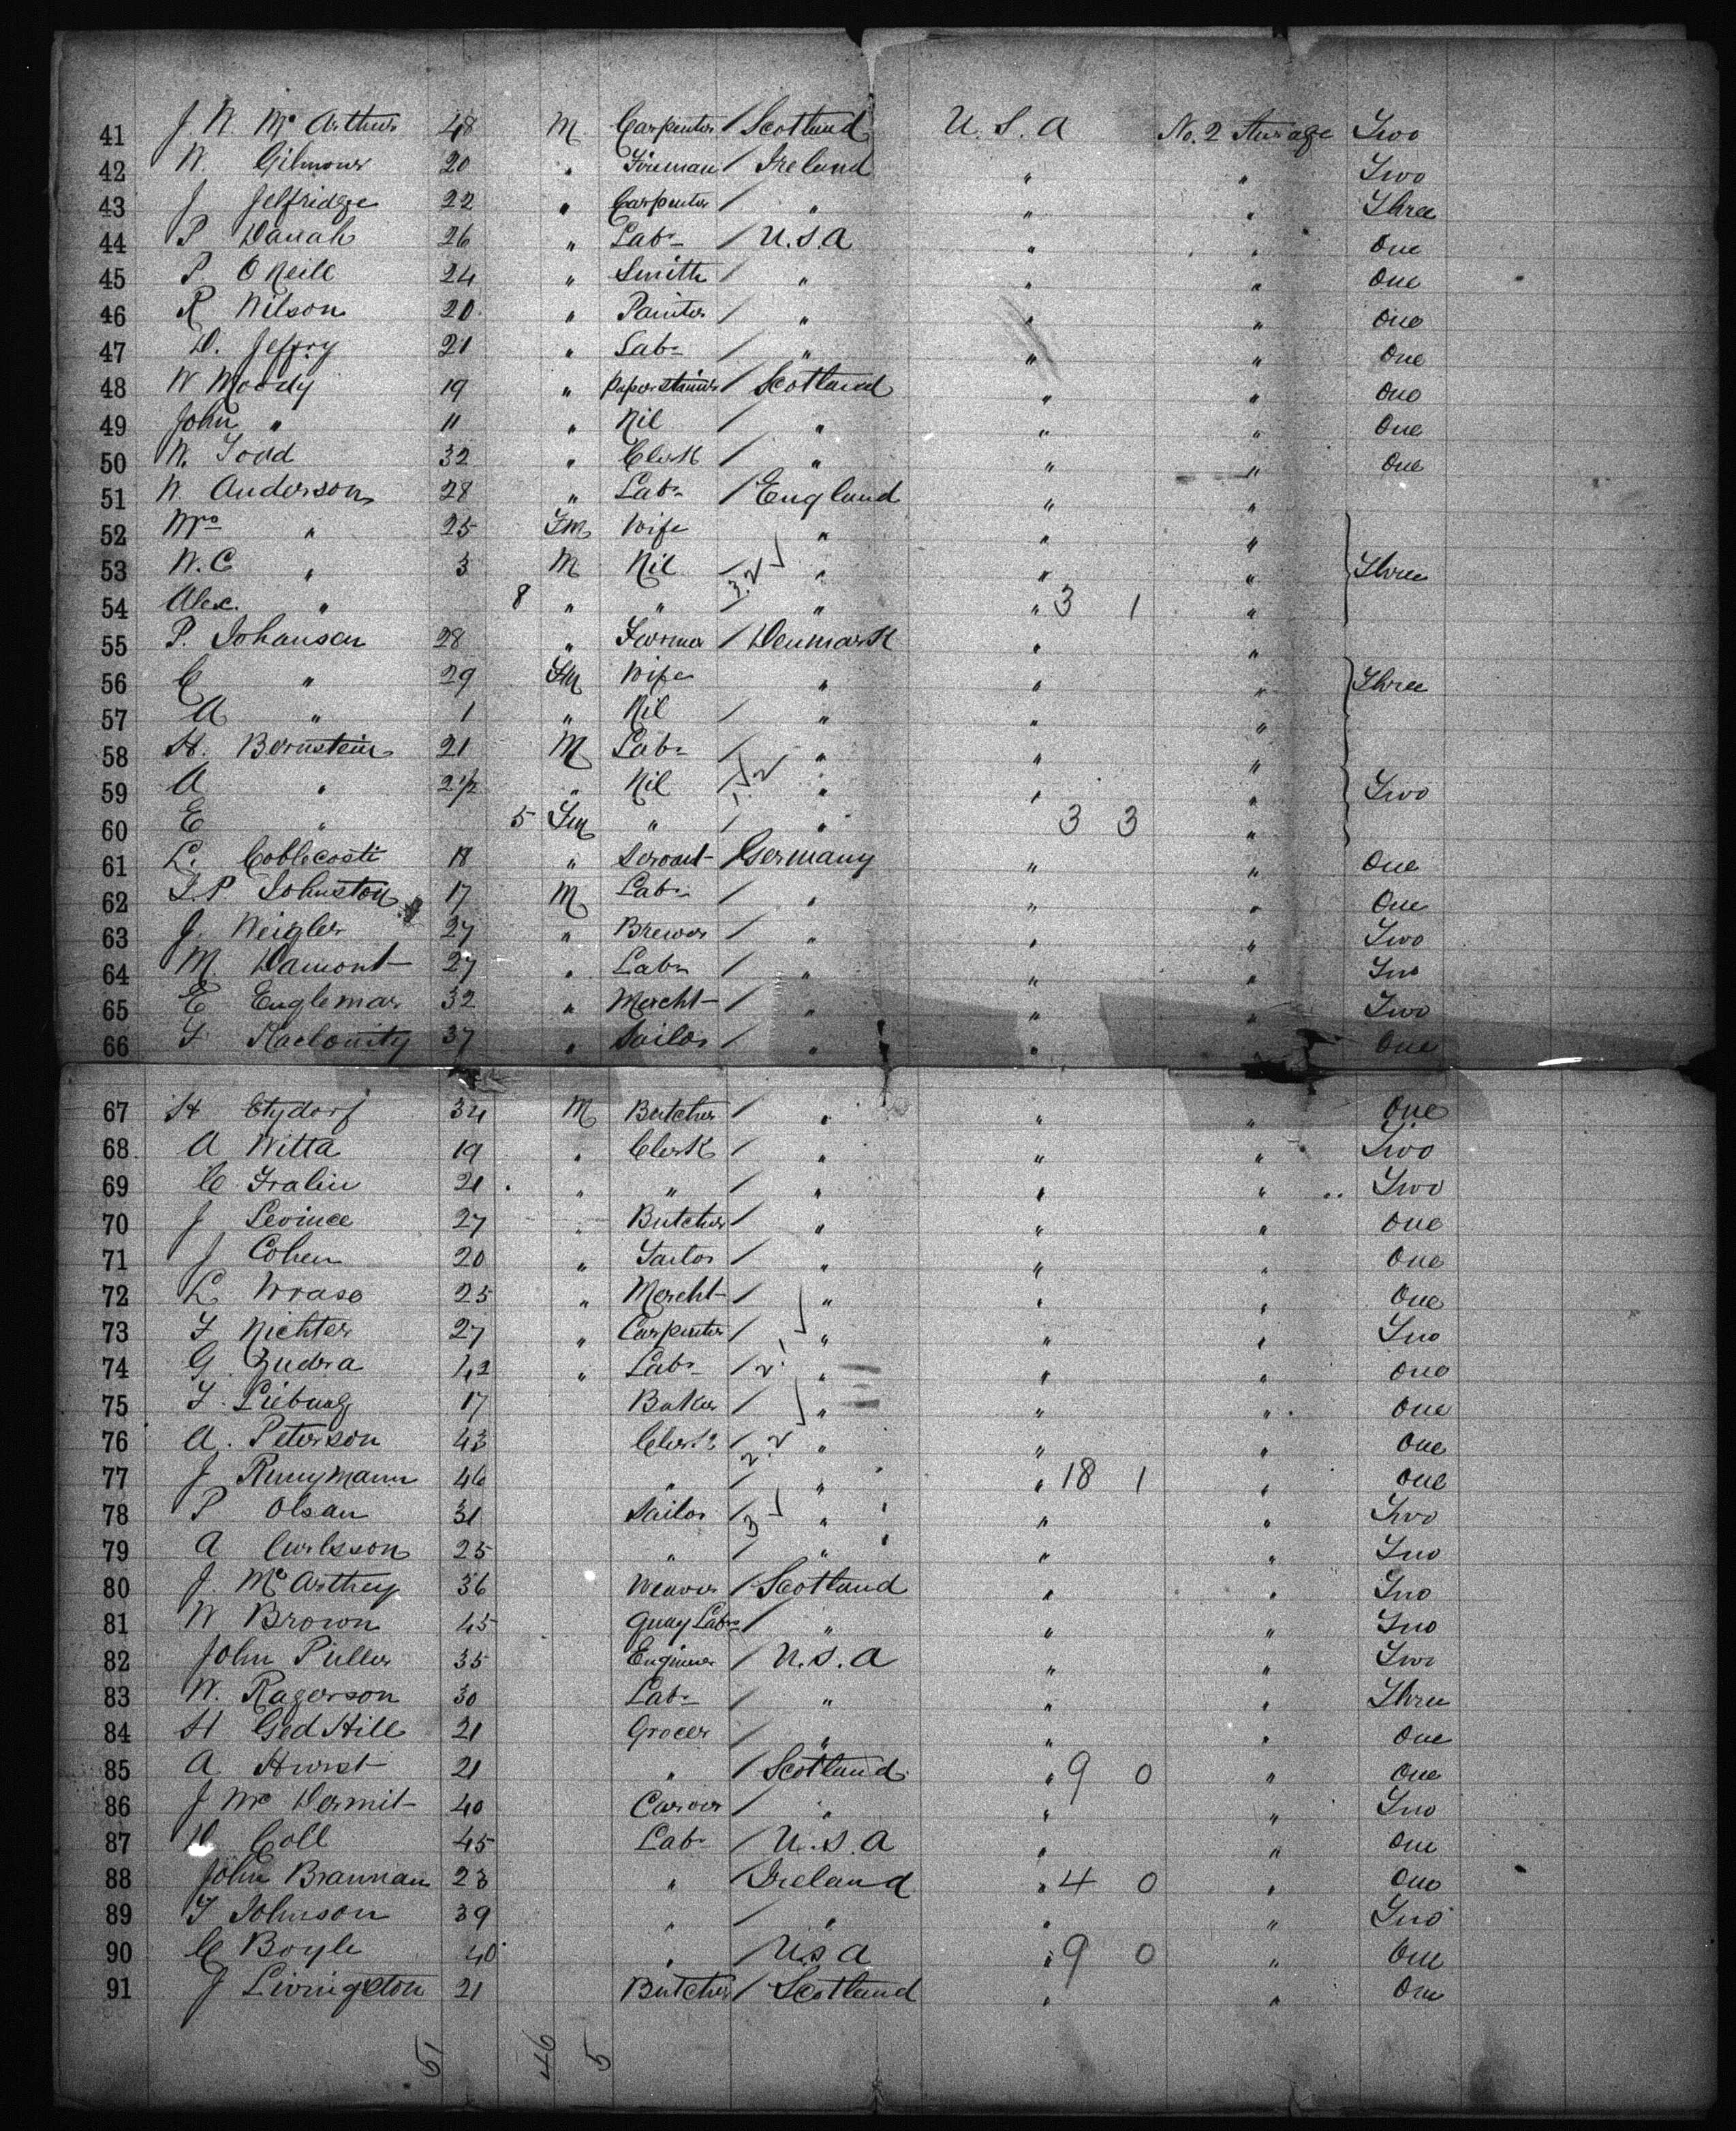 41 J. W. McArthur 48 M Carpenter / Scotland U.S.A No. 2 Steerage Two
42 W. Gilmour 20 " Fireman / Ireland " " Two
43 J Selfridge 22 " Carpenter / " " " Three
44 P 26 " Labr / U.S.A " " One
45 P. O Neill 24 " Smith / " " " One
46 R Wilson 20 " Painter / " " " One
47 D. Jeffry 21 " Labr / " " " One
48 W Moody 19 " Paperstainer / Scotland " " One
49 John " 11 " Nil / " " " One
50 W. Todd 32 " Clerk / " " " One
51 W. Anderson 28 " Labr / England " "
52 Mrs " 25 Fm Wife " " "
53 W. C " 3 M Nil / " " " Three
54 Alex. " 8 " " / " " 3 1 "
55 P. Johansen 28 " Farmer / Denmark " "
56 C " 29 Fm Wife " " " Three
57 A " 1 " Nil / " " "
58 H. Bernstein 21 M Labr / " " "
59 A " 2 1/2 " Nil / " " " Two
60 E " 5 Fm " / " 3 3 "
61 L. 18 " Servant / Germany " " One
62 J. P. Johnston 17 M Labr / " " " One
63 J. Weigler 27 " Brewer / " " " Two
64 M. Damont 27 " Labr / " " " Two
65 E Englemar 32 " Mercht / " " " Two
66 F 37 " Sailor / " " " One
67 H 34 M Butcher / " " " One
68 A Witta 19 " Clerk / " " " Two
69 C Fralin 21 " " / " " " Two
70 J Levince 27 " Butcher / " " " One
71 J Cohen 20 " Tailor / " " " One
72 L Wrase 25 " Mercht / " " " One
73 F Richter 27 " Carpenter / " " " Two
74 G. Zudra 42 " Labr / " " " One
75 F. Lieburg 17 Baker / " " " One
76 A. Peterson 43 Clerk / " " " One
77 J 46 " / " " 18 1 " One
78 P Olsan 31 Sailor / " " " Two
79 A Carlsson 25 " / " " " Two
80 J. McArthey 36 Weaver / Scotland " " Two
81 W Brown 45 Quay Labr / " " " Two
82 John Puller 35 Engineer / U.S.A " " Two
83 W. Ragerson 30 Labr / " " " Three
84 H Ged Hill 21 Grocer / " " " One
85 A Hurst 21 " / Scotland " 9 0 " One
86 J McDermit 40 Carver / " " " Two
87 D. Coll 45 Labr / U.S.A " " One
88 John Brannan 23 " Ireland " 4 0 " One
89 T Johnson 39 " / " " " Two
90 C Boyle 40 " / U.S.A " 9 0 " One
91 J Livingston 21 Butcher / Scotland " " One
51 46 5